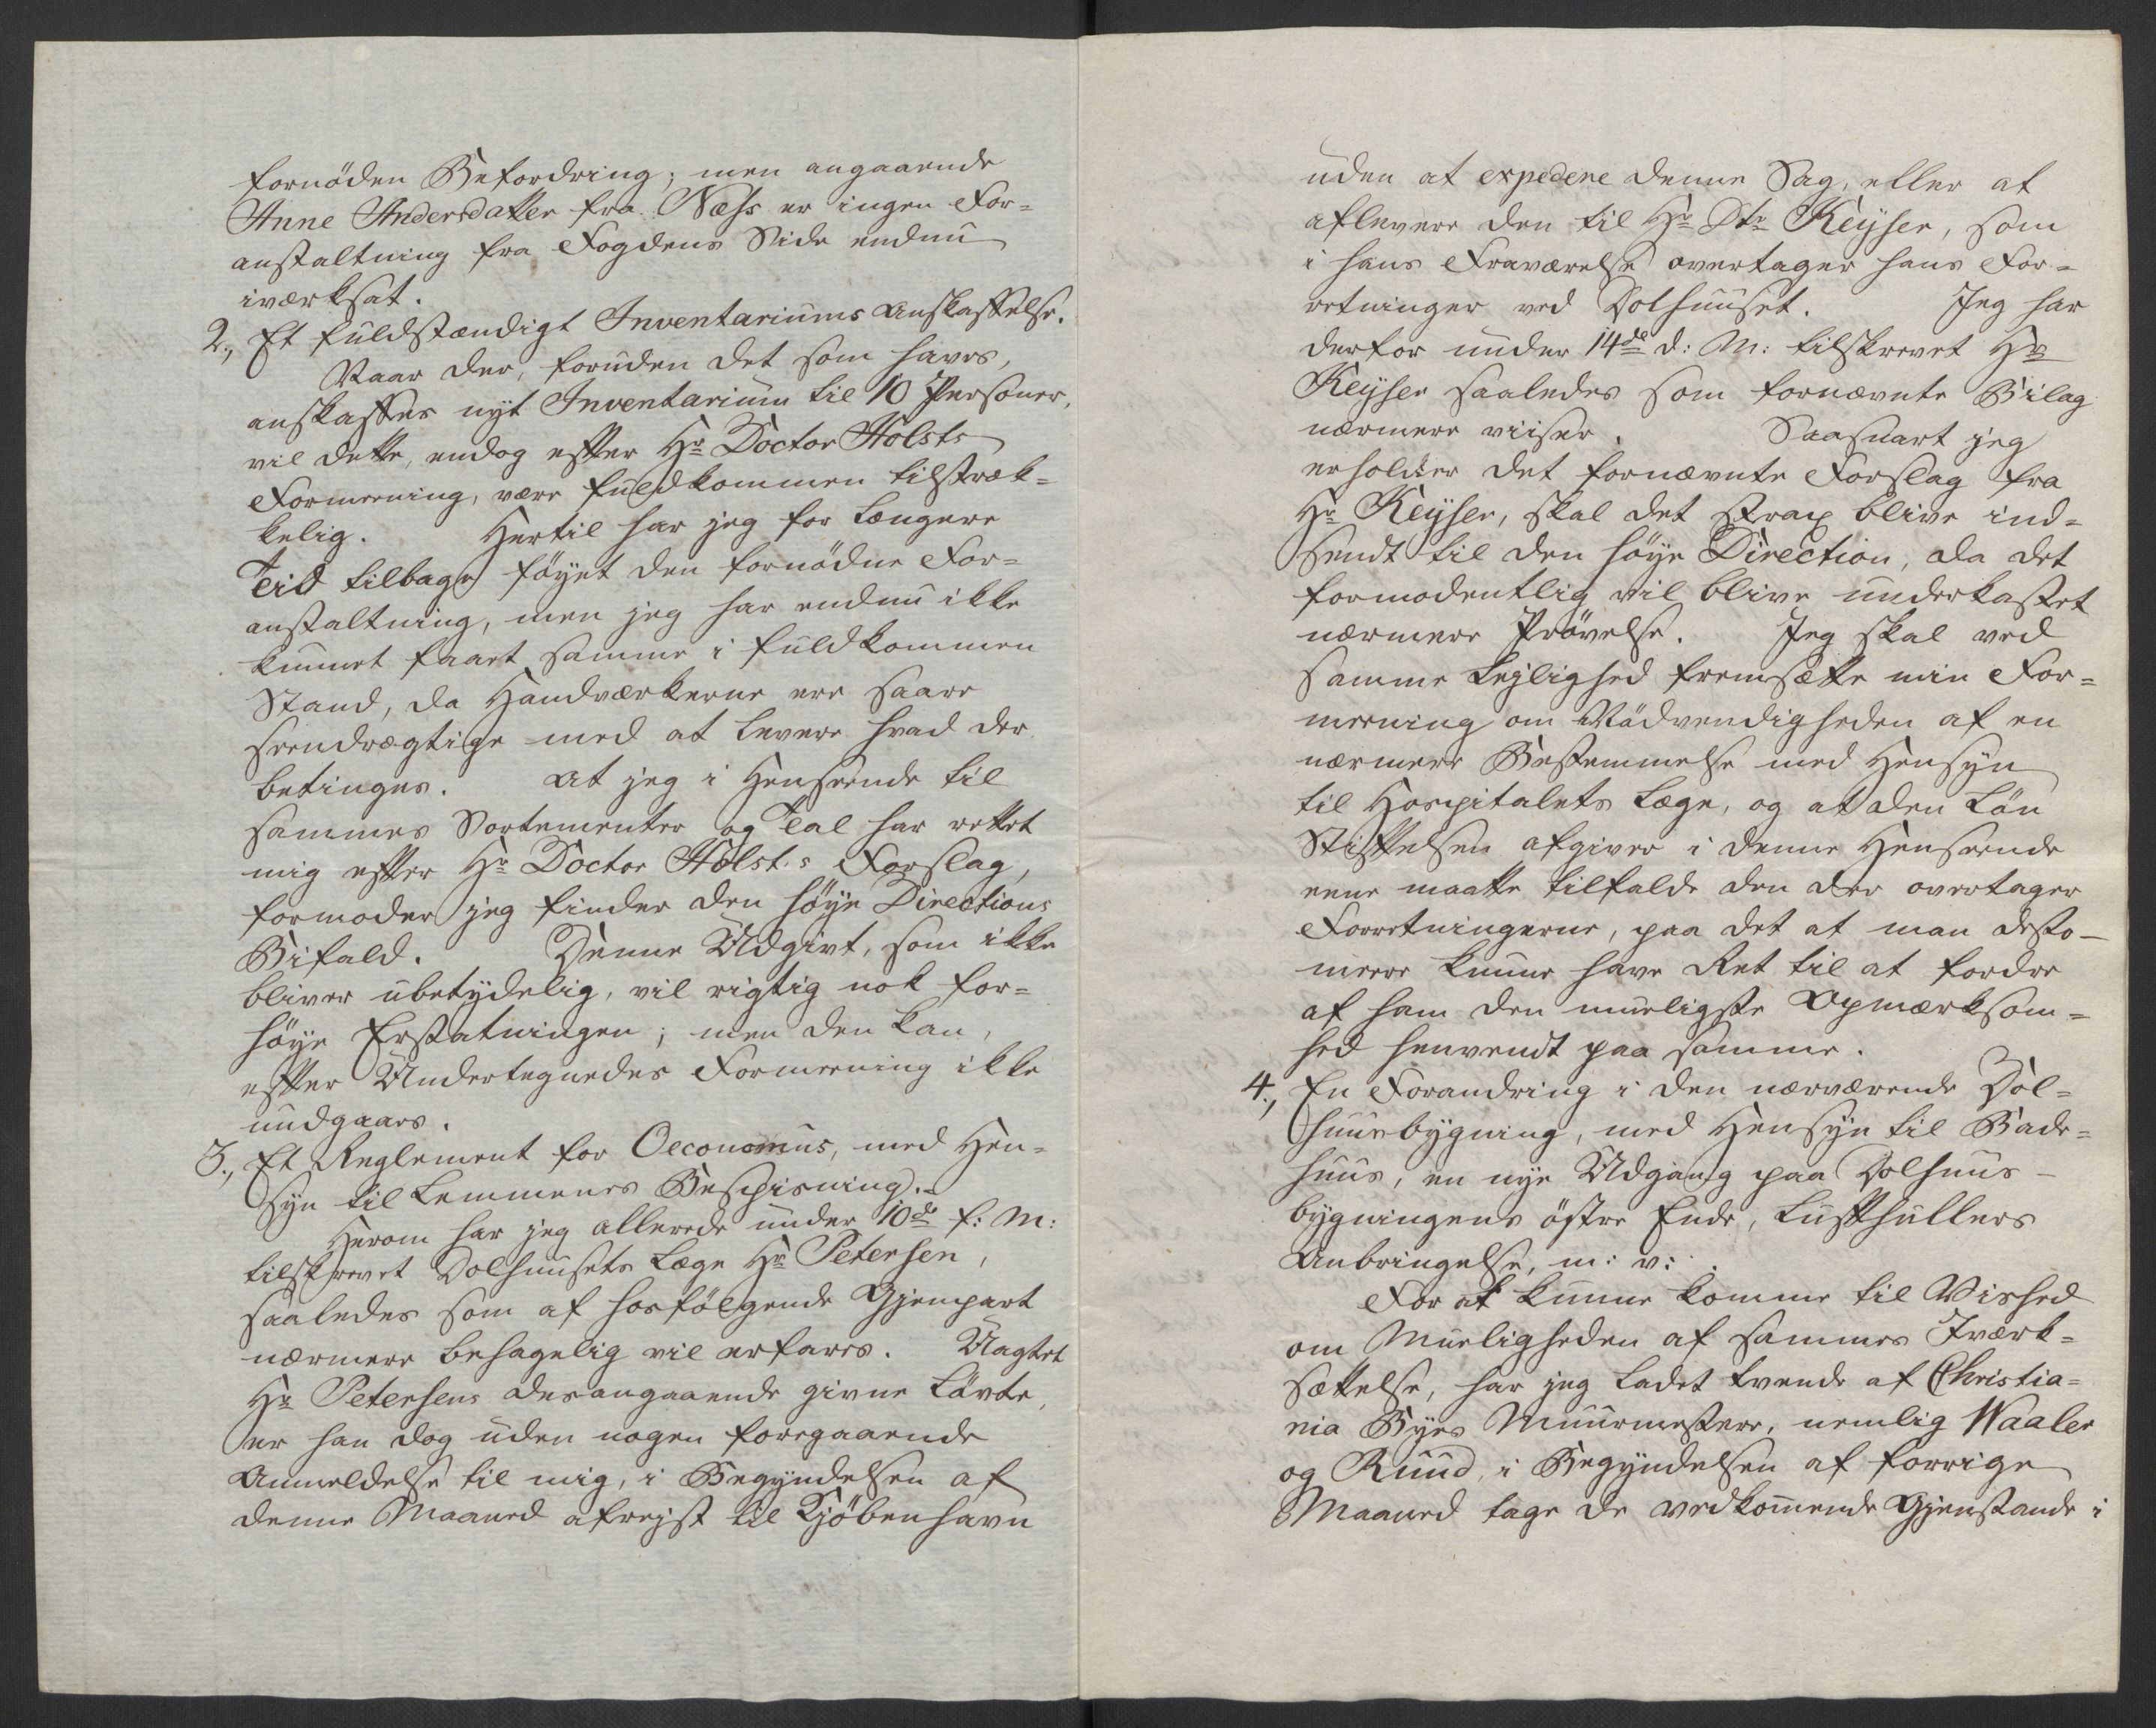 fornöden Befordring; men angaaende
Anne Andersdatter fra Næss er ingen For=
anstaltning fra Fogdens Side endnu
iværksat.
2., Et fuldstændigt Inventariums Anskaffelse.
Naar der, foruden det som haves,
anskaffes nyt Inventarium til 10 Personer,
vil dette, endog efter Hr Doctor Holsts
Formeening, være fuldkommen tilstræk=
kelig. Hertil har jeg for længere
Teid tilbage föyet den fornödne For=
anstaltning, men jeg har endnu ikke
kunnet faaet samme i fuldkommen
Stand, da Handværkerne ere saare
seendrægtige med at levere hvad der
betinges. At jeg i Henseende til
sammes Sortementer og Tal har rettet
mig efter Hr Doctor Holst's Forslag,
formoder jeg finder den höye Directions
Bifald. Denne Udgivt, som ikke
bliver ubetydelig, vil rigtig nok for=
höye Erstatningen; men den kan,
efter Undertegnedes Formeening ikke
undgaaes.
3., Et Reglement for Oeconomus, med Hen=
syn til Lemmenes Bespisning.
Herom har jeg allerede under 10de f: M:
tilskrevet Dolhuusets Læge Hr Petersen,
saaledes som af hosfölgende Gjenpart
nærmere behagelig vil erfares. Uagtet
Hr Petersens desangaaende givne Lövte,
er han dog uden nogen foregaaende
Anmeldelse til mig, i Begyndelsen af
denne Maaned afrejst til Kjöbenhavn
uden at expedere denne Sag, eller at
aflevere den til Hr Dtr Keyser, som
i hans Fraværelse overtager hans For=
retninger ved Dolhuuset. Jeg har
derfor under 14de d: M: tilskrevet Hr
Keyser saaledes som fornævnte Bilag
nærmere viiser. Saasnart jeg
erholder det fornævnte Forslag fra
Hr Keyser, skal det strax blive ind=
sendt til den höye Direction, da det
formodentlig vil blive underkastet
nærmere Prövelse. Jeg skal ved
samme Lejlighed fremsætte min For=
meening om Nödvendigheden af en
nærmere Bestemmelse med Hensyn
til Hospitalets Læge, og at den Lön
Stiftelsen afgiver i denne Henseende
ene maatte tilfalde den der overtager
Forretningerne, paa det at man desto-
meere kunne have Ret til at fordre
af ham den mueligste Opmærksom=
hed henvendt paa samme.
4., En Forandring i den nærværende Dol=
huusbygning, med Hensyn til Bade=
huus, en nye Udgang paa Dolhuus-
bygningens östre Ende, Lufthullers
Anbringelse, m: v:
For at kunne komme til Vished
om Mueligheden af sammes Iværk=
sættelse, har jeg ladet tvende af Christia=
nia Byes Muurmestere, nemlig Waaler
og Ruud, i Begyndelsen af forrige
Maaned tage de vedkommende Gjenstande i